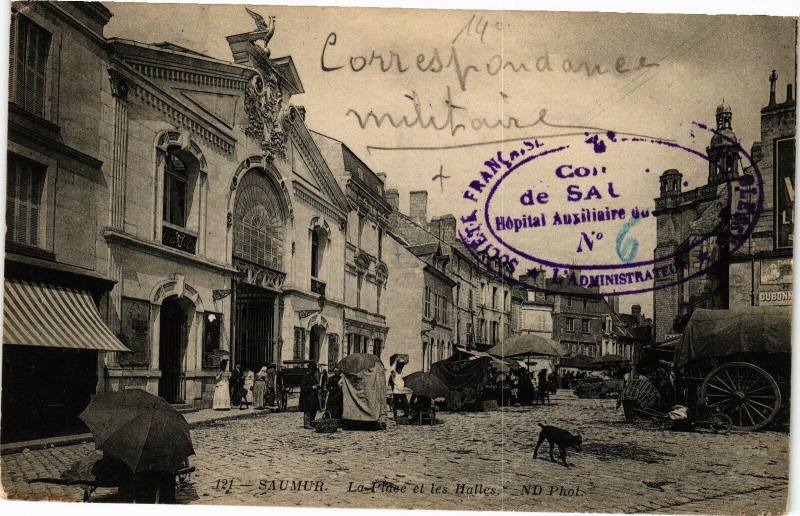 14e
Correspondance
militaire
SOCIÉTÉ FRANÇAISE
de SAU
Hôpital Auxiliaire du
N° 6
L'ADMINISTRATEUR
DUBONN
121 — SAUMUR. La Place et les Halles. ND Phot.